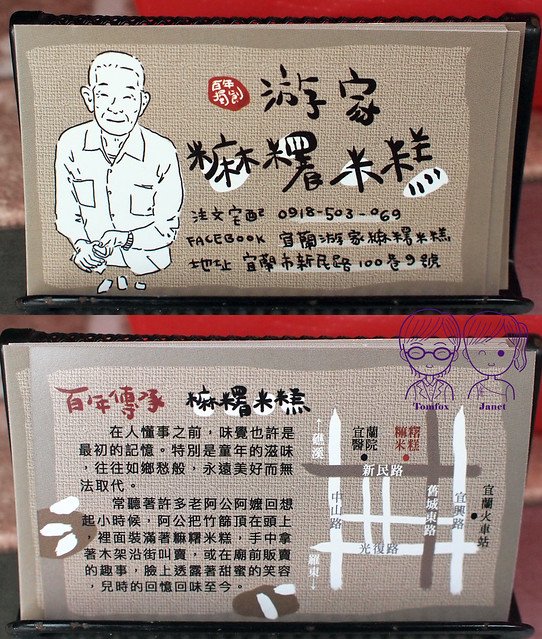 百年
獨創
游家
麻糬米糕
注文宅配 0918-503-069
FACEBOOK 宜蘭游家麻糬米糕
地址 宜蘭市新民路100巷9號
Tomfox
Janet
百年傳承 麻糬米糕
在人懂事之前，味覺也許是
最初的記憶。特別是童年的滋味
，往往如鄉愁般，永遠美好而無
法取代。
常聽著許多老阿公阿嬤回想
起小時候，阿公把竹篩頂在頭上
，裡面裝滿著麻糬米糕，手中拿
著木架沿街叫賣，或在廟前販賣
的趣事，臉上透露著甜蜜的笑容
，兒時的回憶回味至今。
↑礁溪
宜蘭
醫院
麻糬
米糕
新民路
中山路
舊城東路
宜興路
宜蘭火車站
光復路
羅東↓